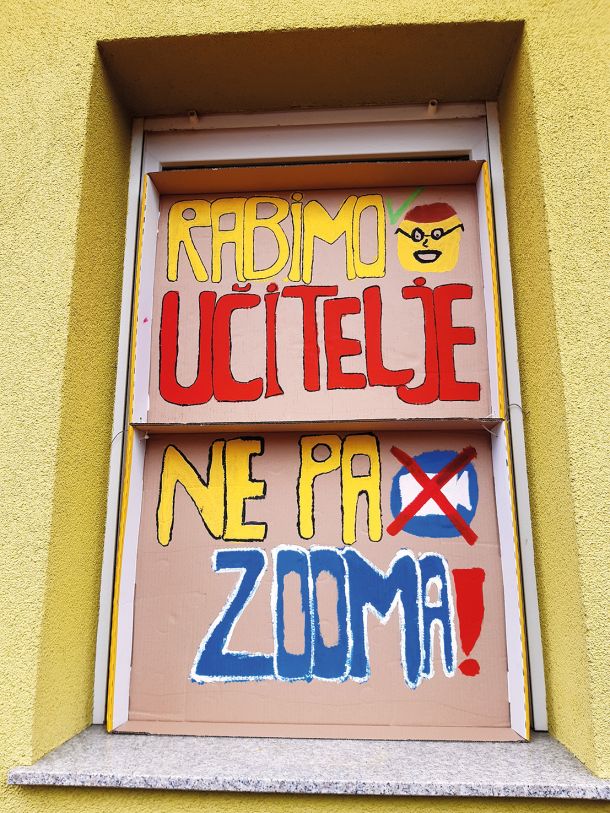 RABiMO
UČiTELJE
NE PA
ZOOMA!